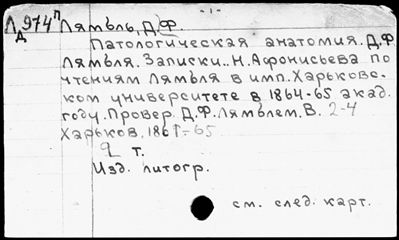 - 1 -
Л д 974 п
Лямбль, Д.Ф.
Патологическая анатомия. Д.Ф.
Лямбля. Записки.. Н. Афонисьева по
чтениям Лямбля в имп. Харьковс-
ком университете в 1864-65 акад.
году. Провер. Д.Ф. Лямблем. В. 2-4
Харьков. 1865-65
2 т.
Изд. литогр.
см. след. карт.